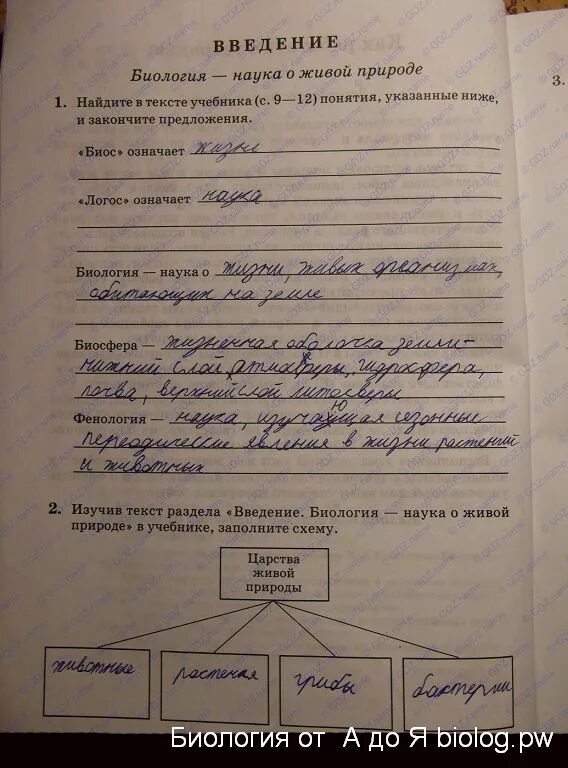 ВВЕДЕНИЕ
Биология — наука о живой природе
1. Найдите в тексте учебника (с. 9—12) понятия, указанные ниже,
и закончите предложения.
«Биос» означает жизнь
«Логос» означает наука
Биология — наука о жизни, живых организмах,
обитающих на земле
Биосфера — жизненная оболочка земли-
нижний слой атмосферы, гидросфера,
почва, верхний слой литосферы
Фенология — наука, изучающая сезонные
переодические явления в жизни растений
и животных
2. Изучив текст раздела «Введение. Биология — наука о живой
природе» в учебнике, заполните схему.
Царства
живой
природы
животные растения грибы бактерии
3.
Биология от А до Я biolog.pw
© GDZ.name